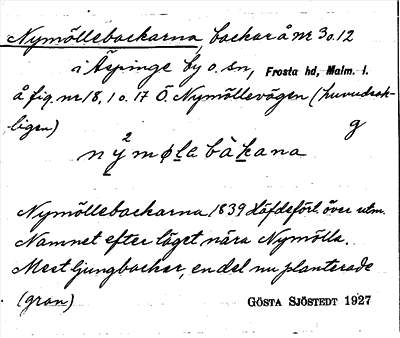 Nymöllebackarna, backar å nr 3 o. 12
i Äspinge by o. sn, Frosta hd, Malm. l.
å fig. nr 18, 1 o. 17 Ö. Nymöllevägen (huvudsak-
ligen) g
2
nýmøla bàkana
Nymöllebackarna, 1839 Häfdeförl. över utm.
Namnet efter läget nära Nymölla.
Mest ljungbackar, en del nu planterade
(gran) GÖSTA SJÖSTEDT 1927